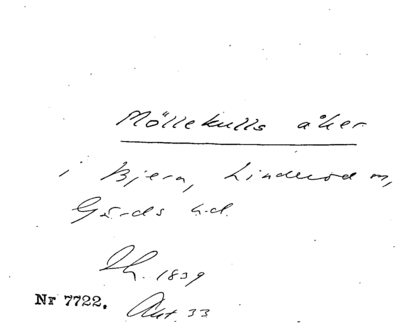 Möllekulls åker
i Bjera, Linderöd sn,
Gärds hd.
Lh. 1839
Nr 7722. Akt. 33